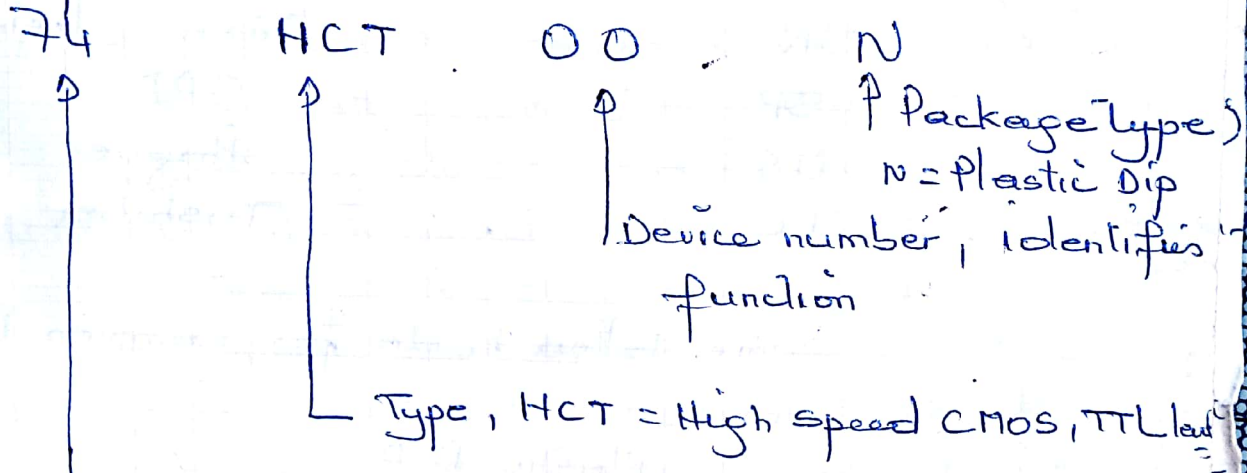 74 HCT 00 N
Package Type,
N = Plastic Dip
Device number, identifies
function
Type, HCT = High speed CMOS, TTL